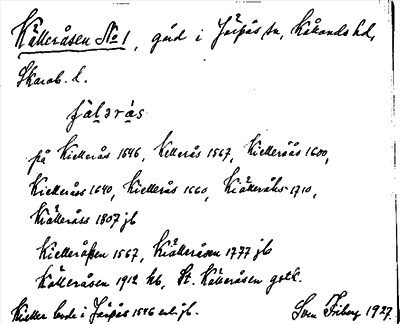 Källeråsen No 1, gård i Järpås sn, Kåkands hd,
Skarab. l.
på Kiellerås 1546, Kellerås 1567, Kielleråås 1600,
Kielleråss 1640, Kiellerås 1660, Kiälleråhs 1710,
Kiälleråss 1807 jb
Kielleråssen 1567, Kiälleråsen 1777 jb
Källeråsen 1912 kb, St. Källeråsen gotl.
Kieller bode i Järpås 1546 enl. jb. Sven Friberg 1927.